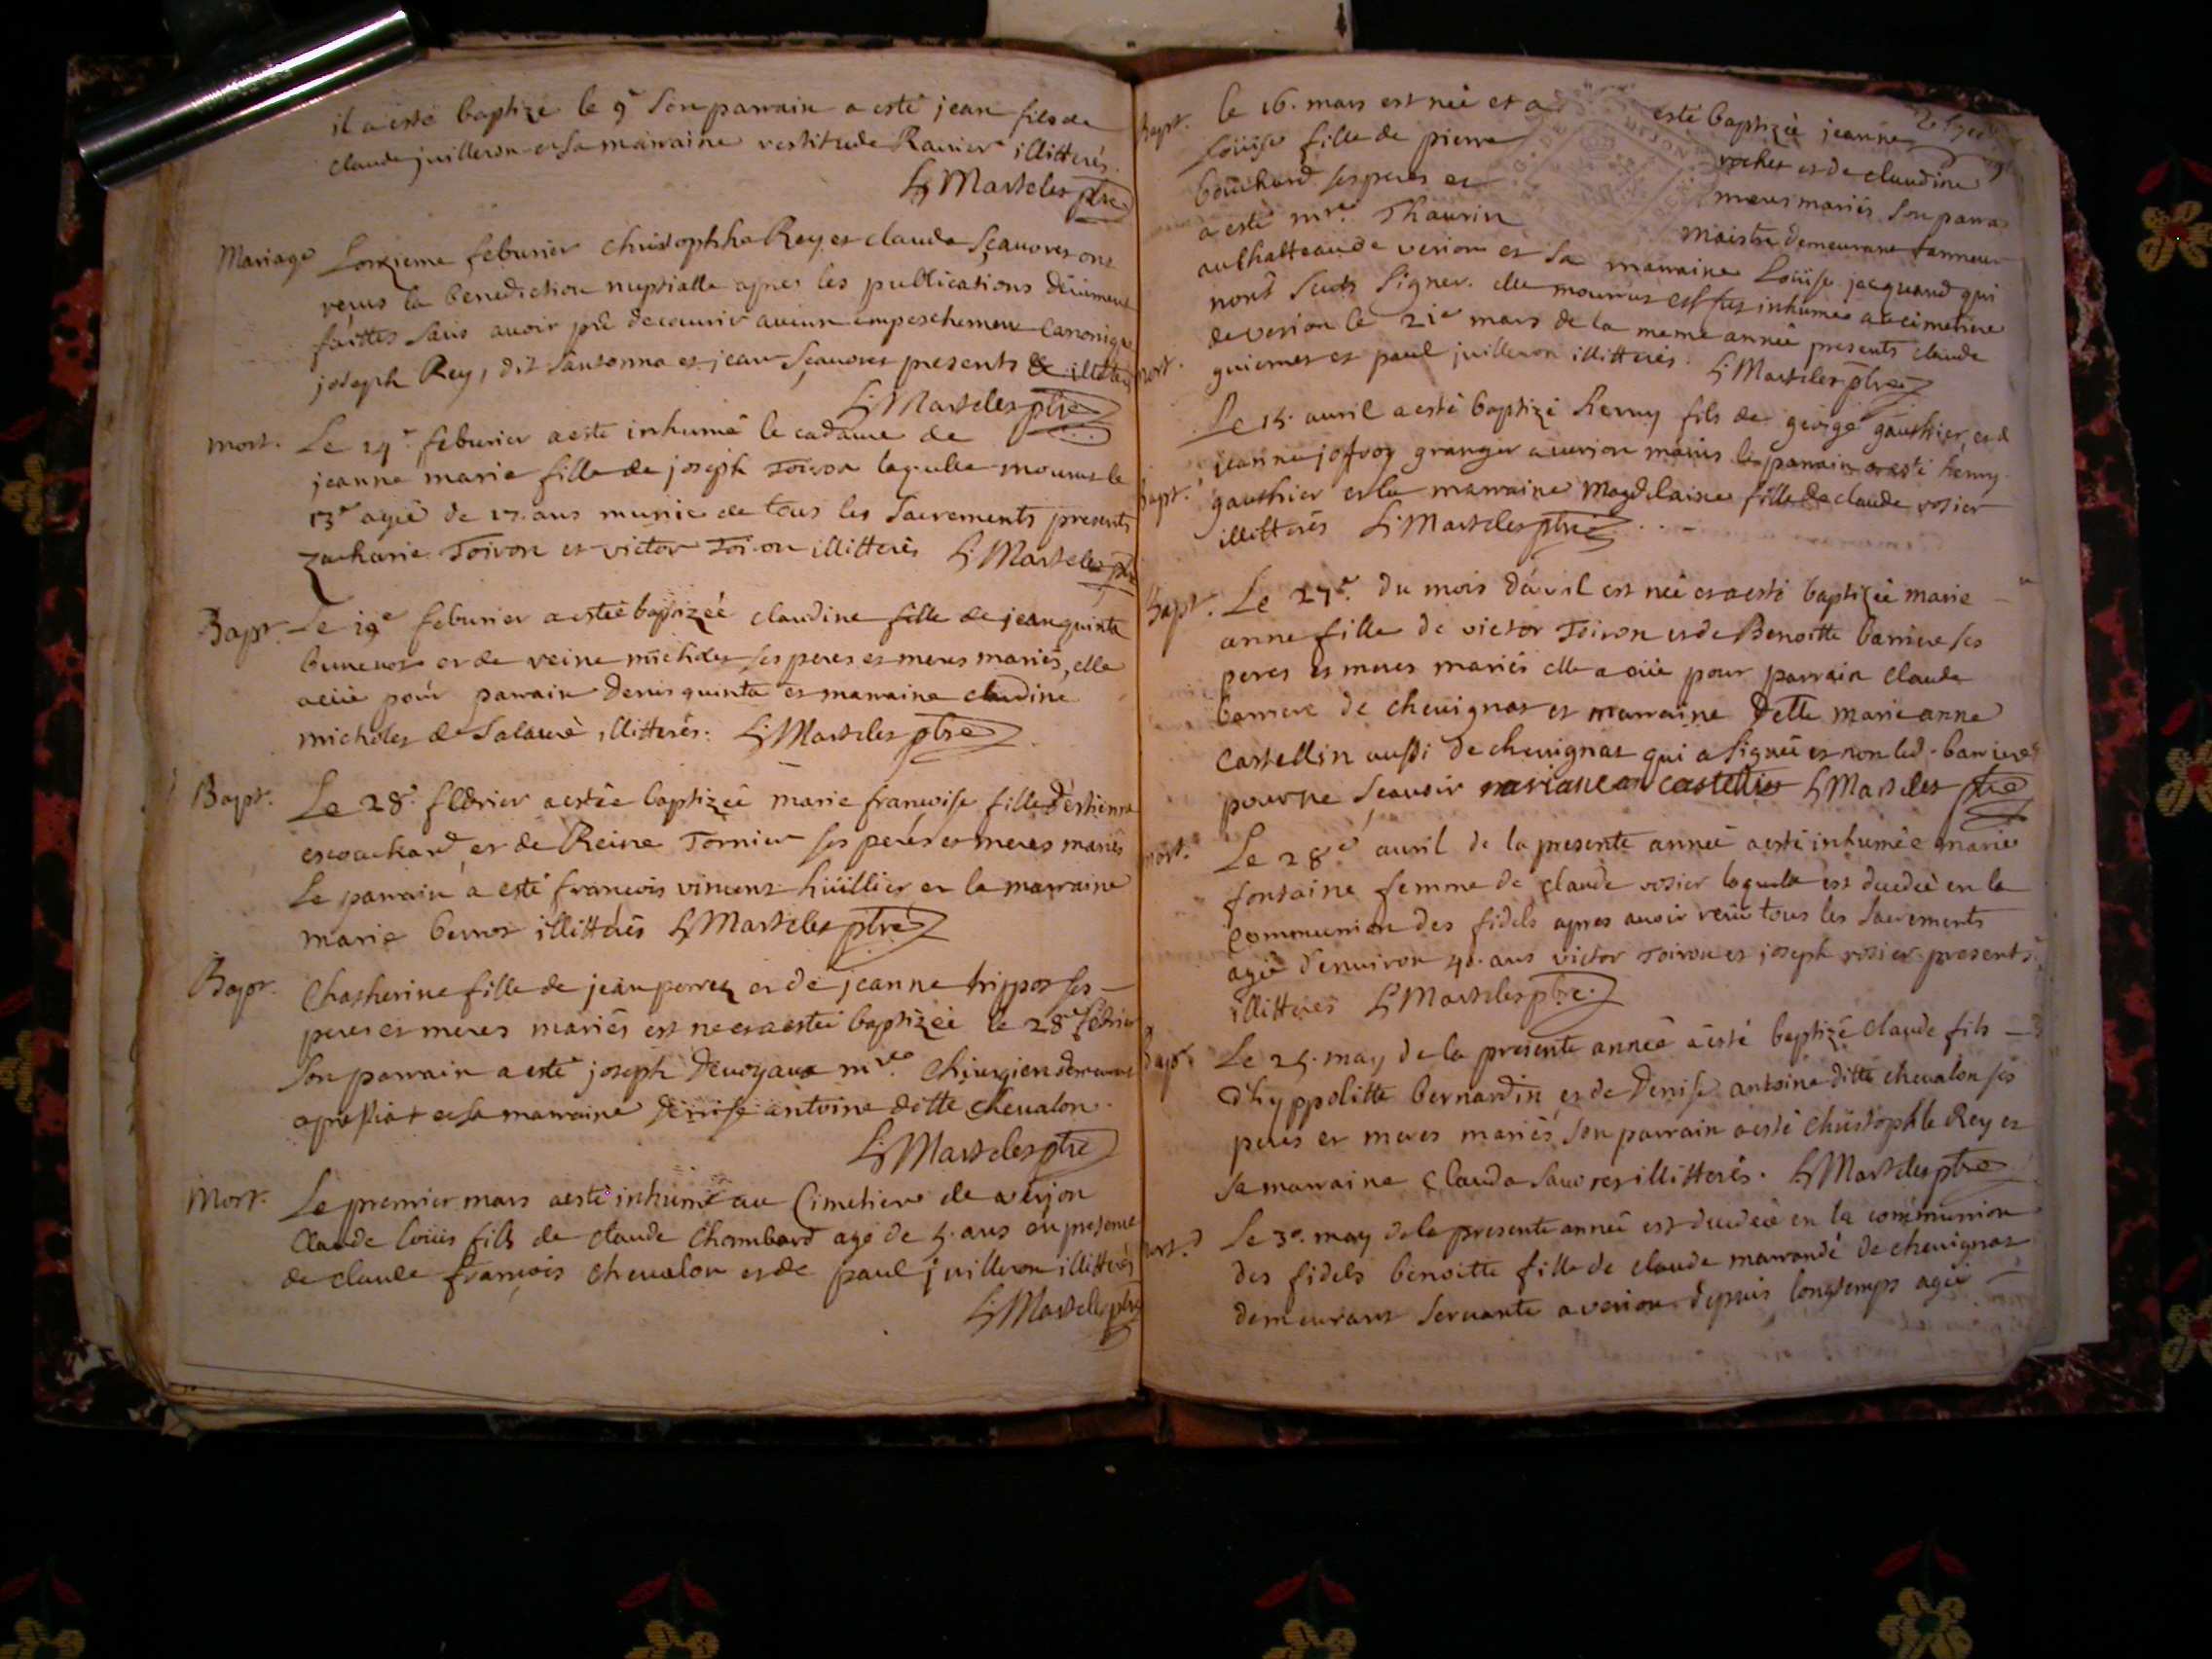 il a esté baptizé le 9e son parrain a esté jean fils de
claude juilleron et sa marraine restitude Ravier illitterés
Martelet ptre
Mariage
L'onzieme feburier christophle Rey et claude Sçauores ont
reçus la benediction nuptialle apres les publications düement
faittes sans auoir pû decouurir aucun empeschement Canonique
joseph Rey, dit Santonna et jean Sçauores presents & illit
Martelet ptre
mort.
Le 14e feburier a esté inhumé le cadavre de
jeanne marie fille de joseph Toiron laquelle mourut le
13e agée de 17. ans munie de tous les Sacrements presents
Zacharie Toiron et victor Toiron illitterés Martelet ptre
Bapt.
Le 19e feburier a esteé baptizeé claudine fille de jean quinta
et de reine micholet ses peres et meres mariés, elle
a eüe pour parrain denis quinta et marraine claudine
micholet de Salauré illitterés. Martelet ptre
Bapt.
Le 28e febrier a esteé baptizeé marie francoise fille d'estienne
escouchard et de Reine Tornier ses peres et meres mariés
Le parrain a esté francois vincent hüillier et la marraine
marie berrot illitterés Martelet ptre
Bapt.
Chatherine fille de jean perret et de jeanne trippoz ses
peres et meres mariés est neé et a esteé baptizeé le 28e febrier
Son parrain a esté joseph deuoyaux mre chirurgien demeurant
a pressiat et sa marraine denise antoine ditte cheualon.
Martelet ptre
Mort.
Le premier mars a esté inhumé au Cimetiere de verjon
Claude loüis fils de claude Chambard agé de 5. ans en presence
de claude françois cheualon et de paul juilleron illitterés
Martelet ptre
Bapt.
le 16. mars est neé et a esté baptizeé jeanne
Loüise fille de pierre rochet et de claudine
bouchard ses peres et meres mariés Son parra
a esté mre. Thaurin Maistre demeurant fanneur
au chatteau de verion et Sa marraine Loüise jacquand qui
nont Sceüs Signer. elle mourut est fut inhumeé au cimetiere
mort.
de verion le 21e mars de la meme anneé presents claude
guiermet et paul juilleron illitterés. Martelet ptre
Bapt.
Le 15. auril a esté baptizé henry fils de george gauthier, et d
jeanne jofroy granger a verion mariés le parrain a esté henry
gauthier et la marraine Magdelaine fille de claude rosier
illitterés Martelet ptre
Bapt.
Le 27e. du mois d'auril est neé et a esté baptizeé marie
anne fille de victor Toiron et de Benoitte barriere ses
peres et meres mariés elle a eüe pour parrain claude
barriere de cheuignat et marraine Delle marie anne
castellin aussi de cheuignat qui a Signeé et non led. barriere
pour ne sçauoir mariane castellin Martelet ptre
mort.
Le 28e auril de la presente anneé a esté inhumeé marie
fontaine femme de claude rosier laquelle est decedeé en la
communion des fidels apres auoir reçü tous les Sacrements
ageé d'enuiron 40. ans victor Toiron et joseph rosier presents
illitterés Martelet ptre.
Bapt.
Le 25. may de la presente anneé a esté baptizé claude fils
d'hyppolitte bernardin et de denise antoine ditte cheualon ses
peres et meres mariés Son parrain a esté christophle Rey et
Sa marraine Clauda Sauores illitterés. Martelet ptre
mort.
Le 30. may de la presente anneé est decedeé en la communion
des fidels benoitte fille de claude marandé de cheuignat
demeurant Seruante a verion depuis longtemps ageé